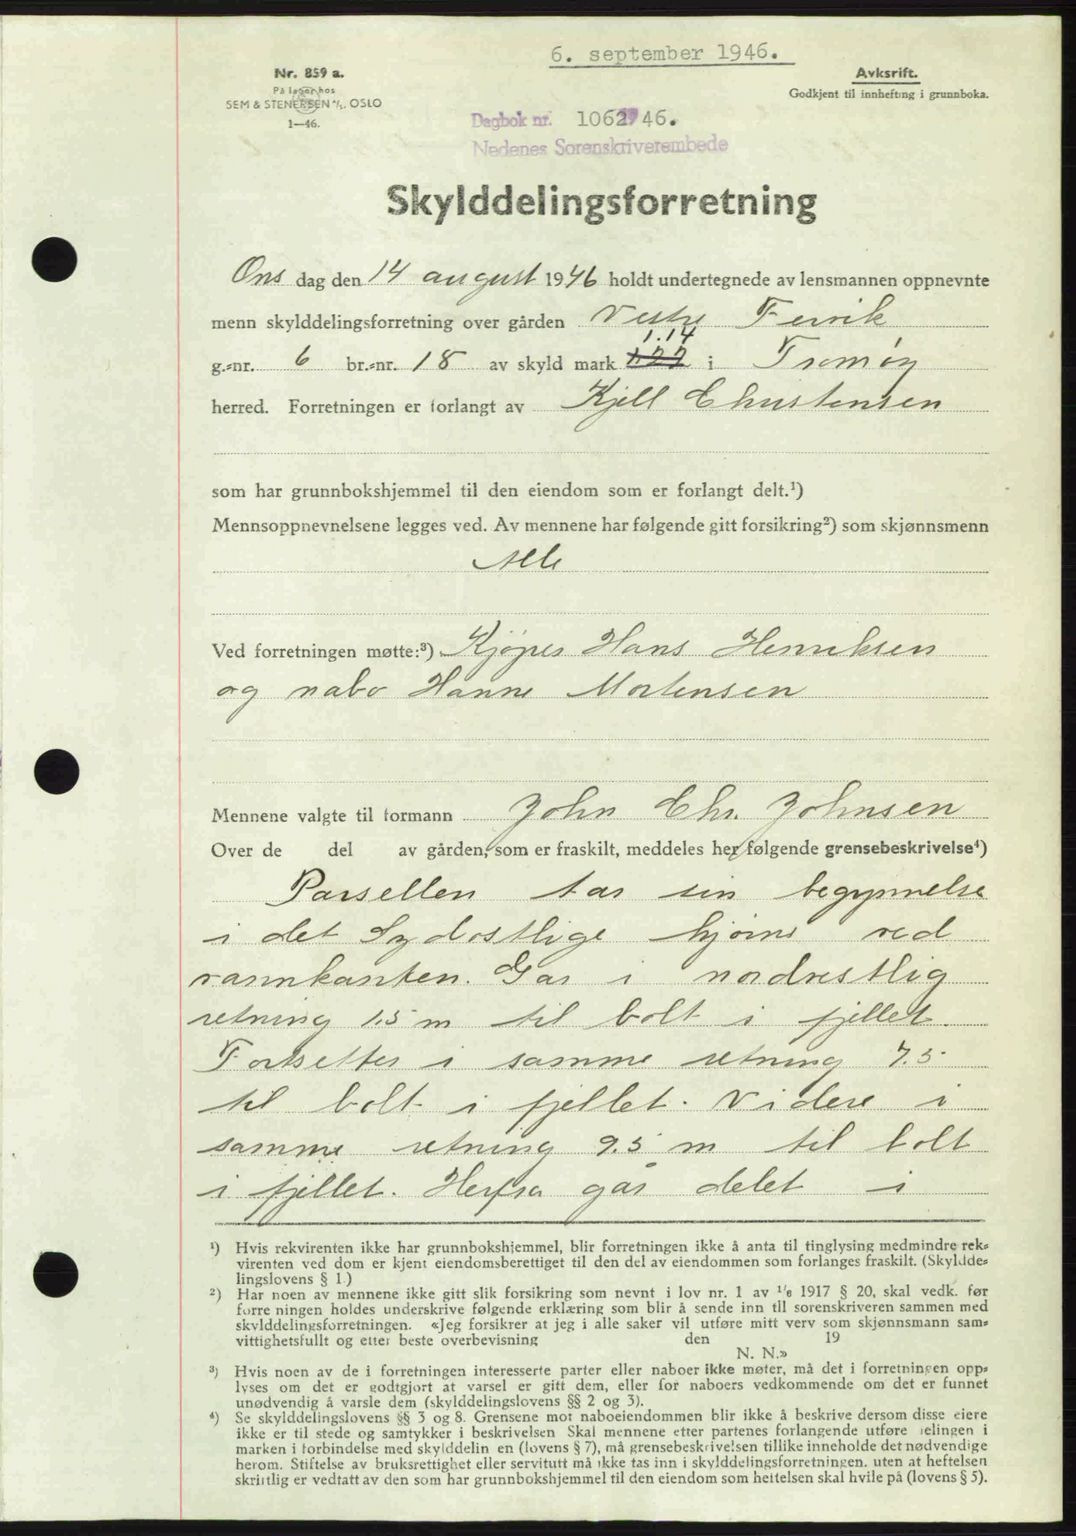 6. september 1946.
Nr. 859 a.
På lager hos
SEM & STENERSEN A/S. OSLO
1—46.
Avskrift.
Godkjent til innhefting i grunnboka.
Dagbok nr. 1062 46.
Nedenes Sorenskriverembede
Skylddelingsforretning
Ons dag den 14 august 1946 holdt undertegnede av lensmannen oppnevnte
menn skylddelingsforretning over gården Vestre Fervik
1.14
g.-nr. 6 br.-nr. 18 av skyld mark 1.27 i Tromøy
herred. Forretningen er forlangt av Kjell Christensen
som har grunnbokshjemmel til den eiendom som er forlangt delt.¹)
Mennsoppnevnelsene legges ved. Av mennene har følgende gitt forsikring²) som skjønnsmenn
Alle
Ved forretningen møtte:³) Kjøper Hans Henriksen
og nabo Hanne Mortensen
Mennene valgte til formann John Chr. Johnsen
Over de del av gården, som er fraskilt, meddeles her følgende grensebeskrivelse⁴)
Parsellen tar sin begynnelse
i det Sydøstlige hjørne ved
vannkanten. Går i nordvestlig
retning 1.5 m til bolt i fjellet.
Fortsetter i samme retning 7.5
til bolt i fjellet. Videre i
samme retning 9.5 m til bolt
i fjellet. Herfra går delet i
¹) Hvis rekvirenten ikke har grunnbokshjemmel, blir forretningen ikke å anta til tinglysing medmindre rek-
virenten ved dom er kjent eiendomsberettiget til den del av eiendommen som forlanges fraskilt. (Skyldde-
lingslovens § 1.)
²) Har noen av mennene ikke gitt slik forsikring som nevnt i lov nr. 1 av ¹/6 1917 § 20, skal vedk. før
forre ningen holdes underskrive følgende erklæring som blir å sende inn til sorenskriveren sammen med
skylddelingsforretningen. «Jeg forsikrer at jeg i alle saker vil utføre mitt verv som skjønnsmann sam-
vittighetsfullt og etter beste overbevisning den 19
N. N.»
³) Hvis noen av de i forretningen interesserte parter eller naboer ikke møter, må det i forretningen opp-
lyses om det er godtgjort at varsel er gitt dem, eller for naboers vedkommende om det er funnet
unødvendig å varsle dem (skylddelingslovens §§ 2 og 3).
⁴) Se skylddelingslovens §§ 3 og 8. Grensene mot naboeiendommen blir ikke å beskrive dersom disse eiere
ikke er til stede og samtykker i beskrivelsen Skal mennene etter partenes forlangende utføre delingen i
marken i forbindelse med skylddelin en (lovens § 7), må grensebeskrivelsen tillike inneholde det nødvendige
herom. Stiftelse av bruksrettighet eller servitutt må ikke tas inn i skylddelingsforretningen. uten at heftelsen
skriftlig er vedtatt av den som har grunnbokshjemmel til den eiendom som heftelsen skal hvile på (lovens § 5).